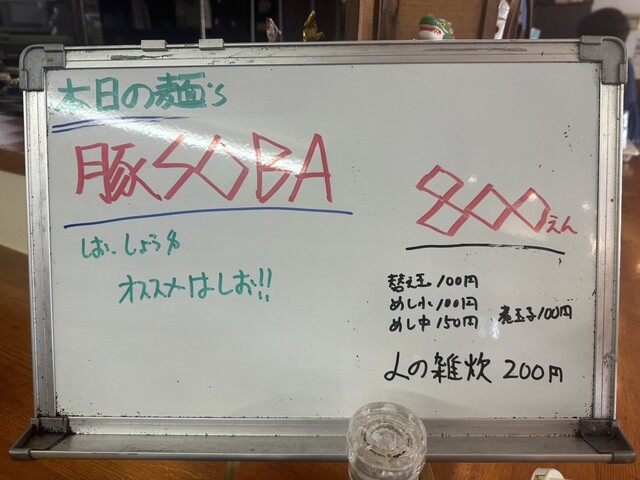 本日の麺's
豚SOBA
800えん
しお、しょうゆ
オススメはしお!!
替え玉 100円
めし小 100円
めし中 150円
煮玉子100円
人の雑炊 200円